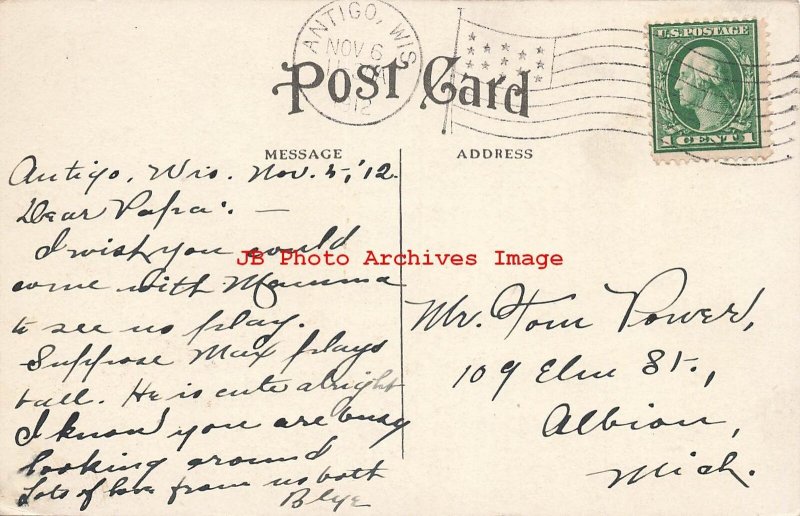 ANTIGO, WIS.
NOV 6
12
U.S. POSTAGE
1 CENT 1
Post Card
MESSAGE
ADDRESS
Antigo, Wis. Nov. 5, '12.
Dear Papa: —
I wish you would
come with Mamma
to see us play.
Suppose Max plays
ball. He is cute alright
I know you are busy
looking around
Lots of love from us both
Blye
JB Photo Archives Image
Mr. Tom Power,
109 Elm St.,
Albion,
Mich.